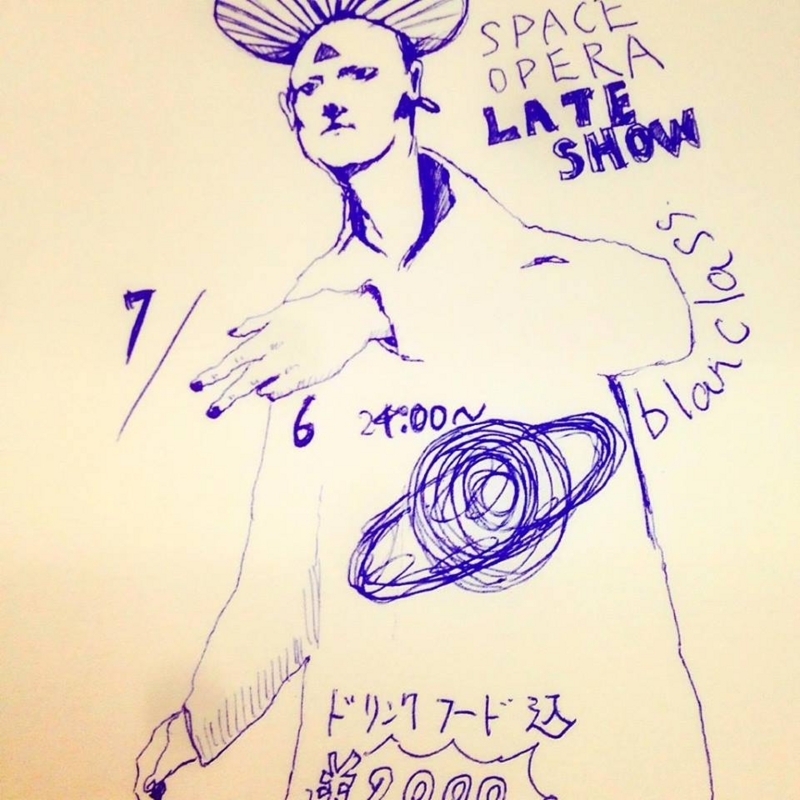 SPACE
OPERA
LATE
SHOW
blanclass
7/6
24:00~
ドリンクフード込
¥2000